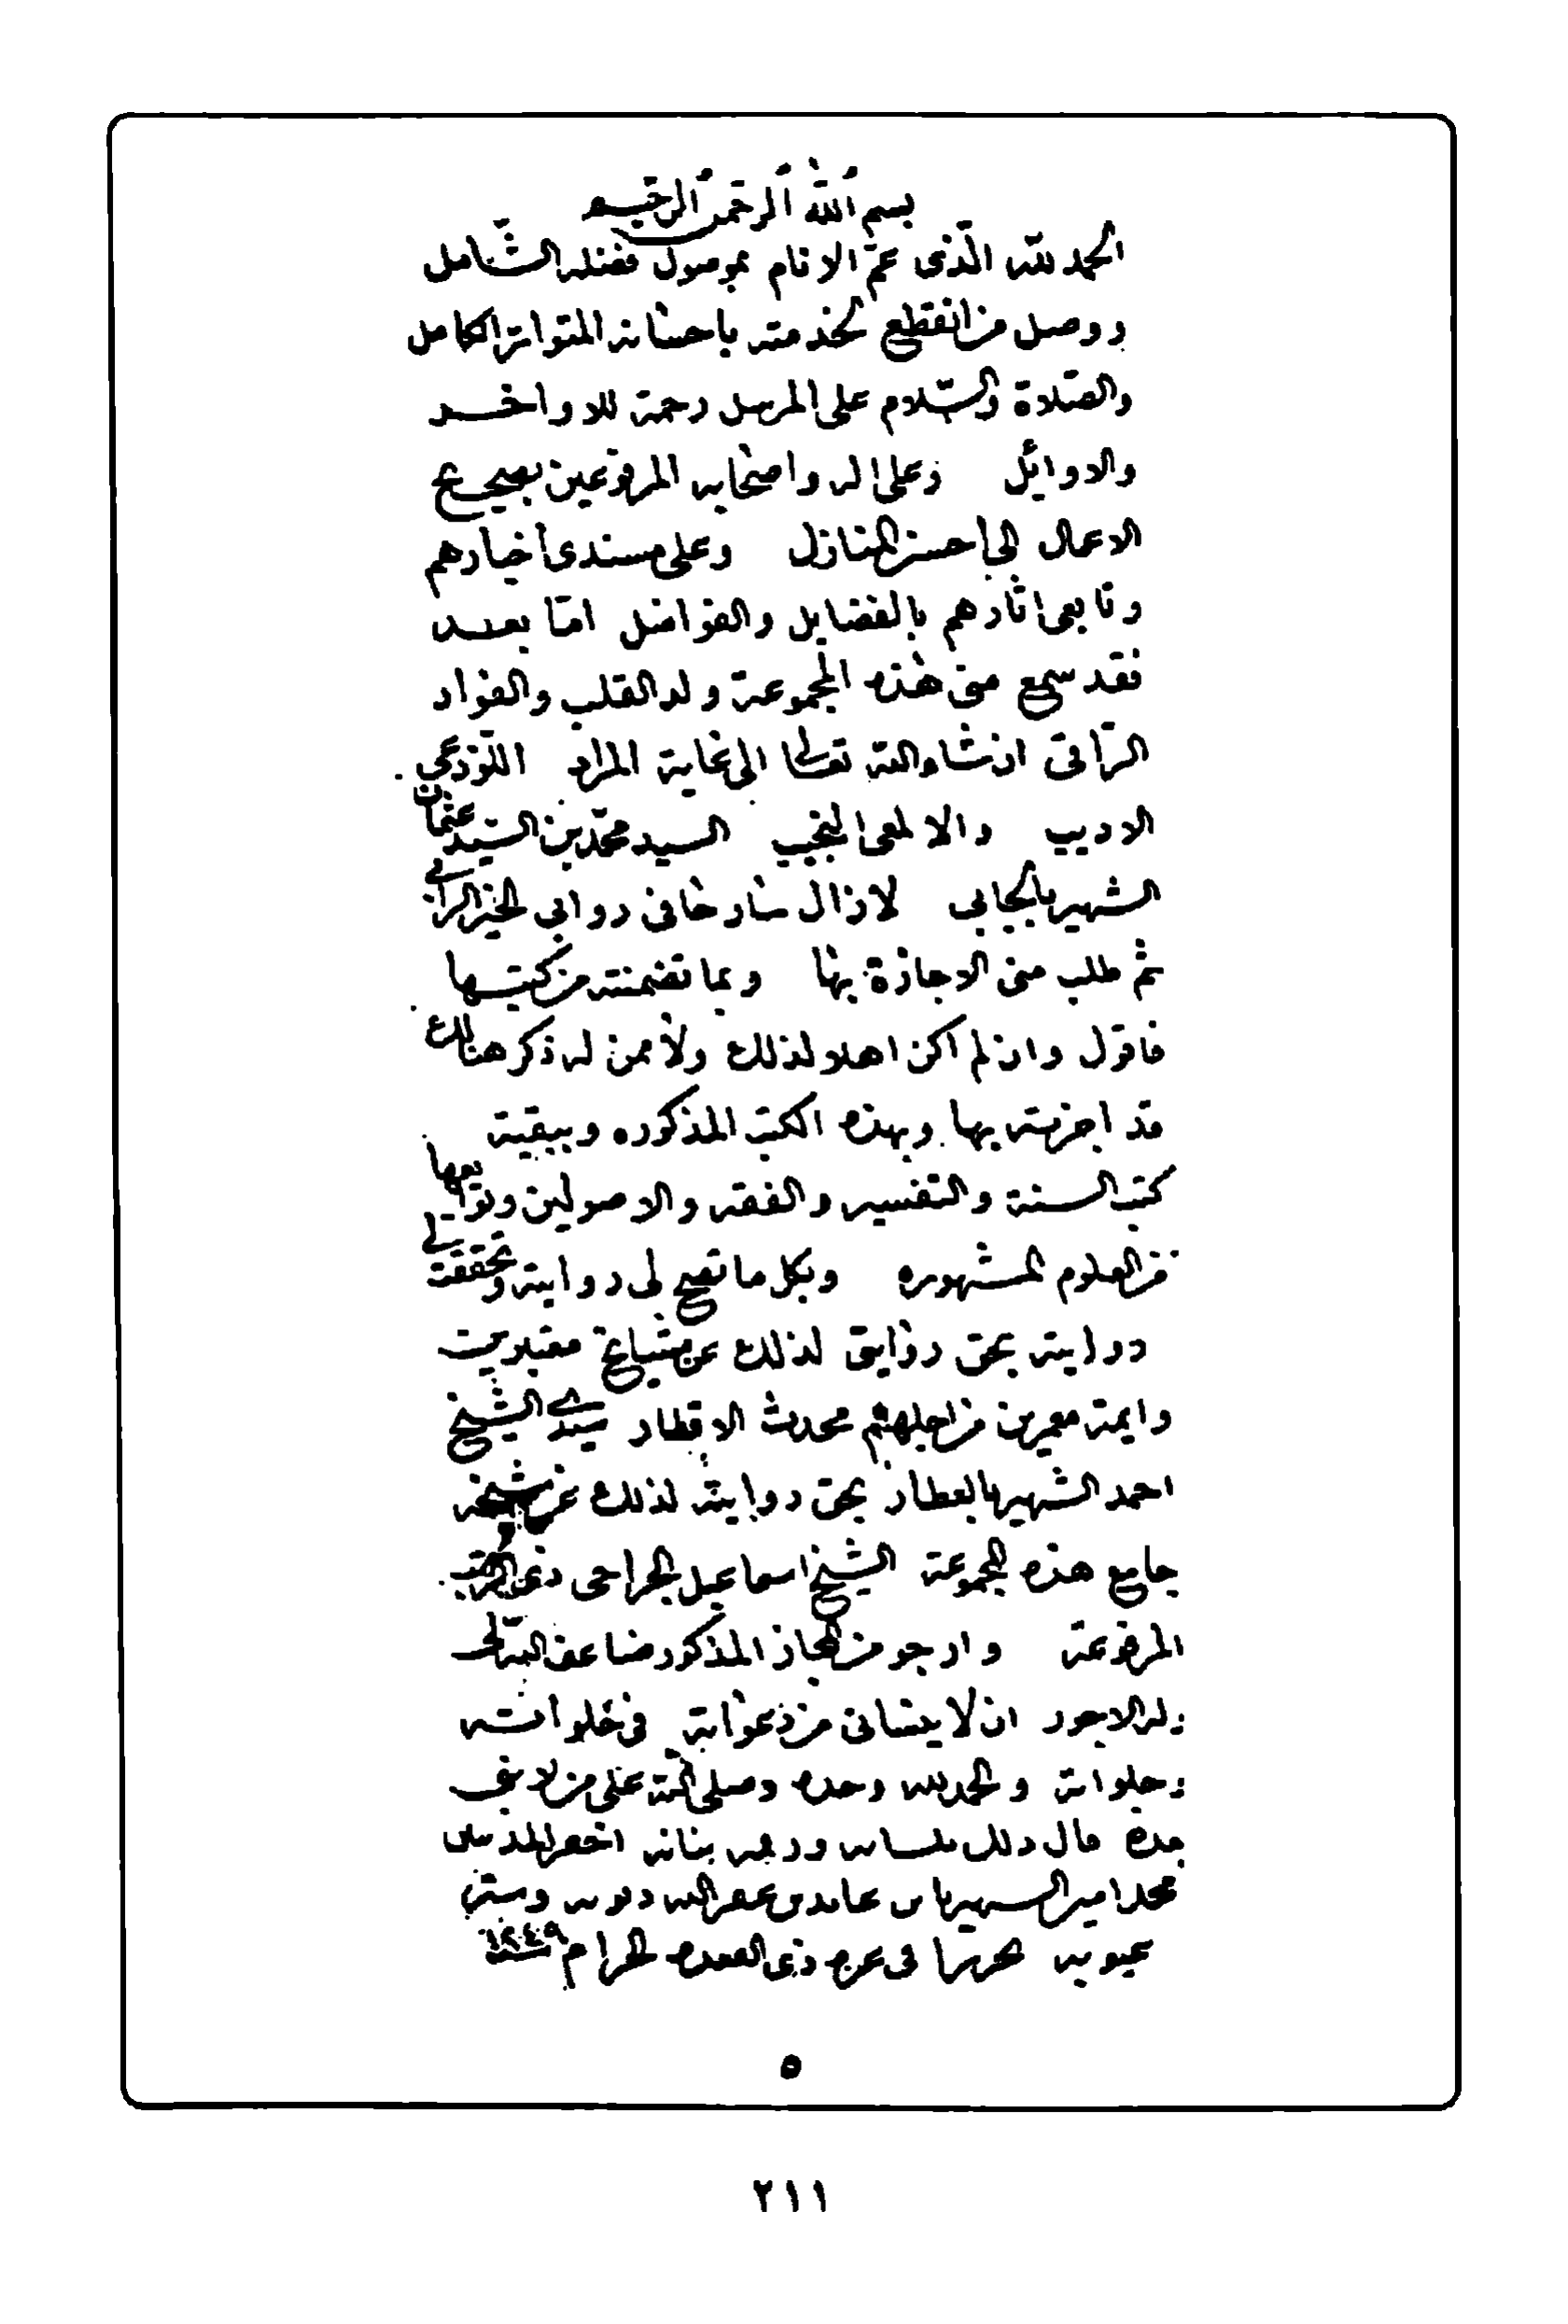 بسم الله الرحمن الرحيم
الحمد لله الذى عمّ الانام بموصول فضله الشّامل
ووصل من انقطع لخدمته باحسانه المتواتر الكامل
والصّلاة والسّلام على المرسل رحمة للاواخر
والاوايل وعلى اله واصحابه المرفوعين بصحيح
الاعمال الى احسن المنازل وعلى مسندى أخبارهم
وتابعى اثارهم بالفضايل والفواضل امّا بعد
فقد سمع منى هذه المجموعة ولد القلب والفواد
الرّاقى ان شاء الله تعالى الى غاية المراد اللّوذعى
الاديب والالمعى النجيب السيد محمّد بن السّيّد عثمان
الشهير بالجابى لا زال شارخا فى روابى الخير الرابى
ثم طلب منى الاجازة بها وبما تضمنته من كتبها
فاقول وان لم اكن اهلا لذلك ولا ممن له ذكر هنالك
قد اجزته بها وبهذه الكتب المذكوره وببقية
كتب السنة والتفسير والفقه والاصولين وتوابعها
من العلوم المشهوره وبكل ما تصح لى روايته وتحققت لى
درايته بحق روايتى لذلك عن مشايخ معتبرين
وايمة معمرين من اجلهم محدث الاقطار سيدى الشيخ
احمد الشهير بالعطار بحق روايته لذلك عن شيخه
جامع هذه المجموعة الشيخ اسماعيل الجراحى ذى الرتب
المرفوعة وارجو من المجاز المذكور ضاعف الله لى
وله الاجور ان لا ينسانى من دعواته فى خلواته
وجلواته والحمد لله وحده وصلى الله على من لا نبى
بعده قال ذلك بلسانه ورقمه ببنانه احقر المذنبين
محمد امين الشهير بابن عابدين غفر الله ذنوبه وستر
عيوبه تحريرا فى غرة ذى القعدة الحرام سنة ١٢٤٩
٥
٢١١